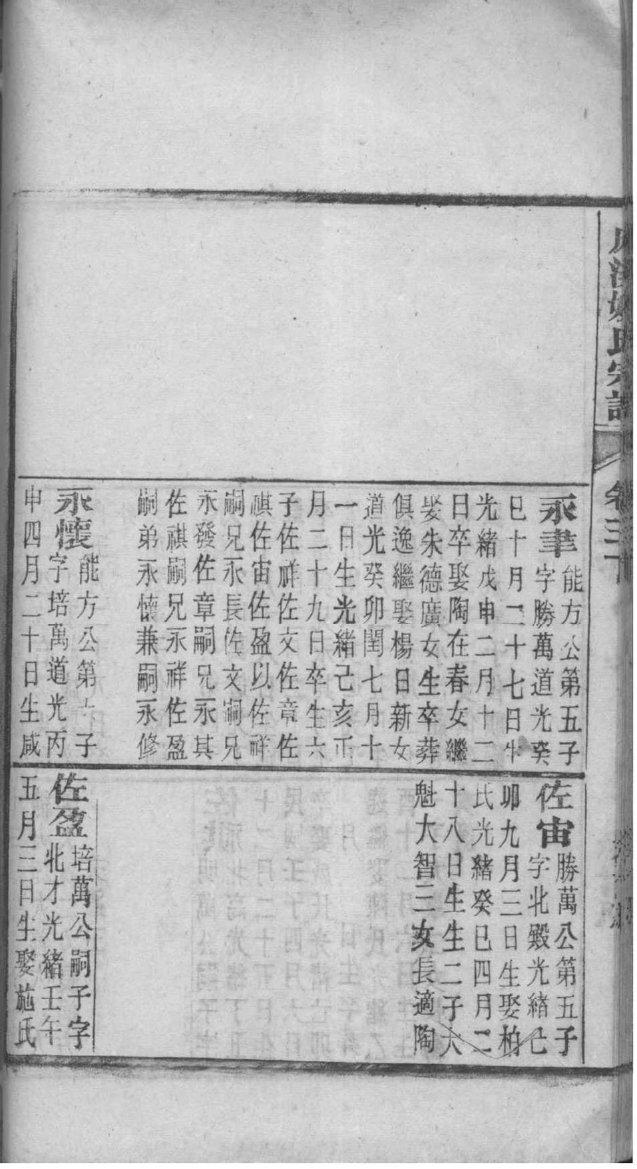 姚氏宗譜
卷三十
永聿 能方公第五子
字勝萬道光癸
巳十月二十七日生
光緒戊申二月十二
日卒娶陶在春女繼
娶朱德廣女生卒葬
俱逸繼娶楊日新女
道光癸卯閏七月十
一日生光緒己亥正
月二十九日卒生六
子佐祥佐文佐章佐
祺佐宙佐盈以佐祥
嗣兄永長佐文嗣兄
永發佐章嗣兄永其
佐祺嗣兄永祥佐盈
嗣弟永懷兼嗣永修
永懷 能方公第六子
字培萬道光丙
申四月二十日生咸
佐宙 勝萬公第五子
字北殿光緒己
卯九月三日生娶柏
氏光緒癸巳四月二
十八日生生二子大
魁大智三女長適陶
佐盈 培萬公嗣子字
北才光緒壬午
五月三日生娶施氏